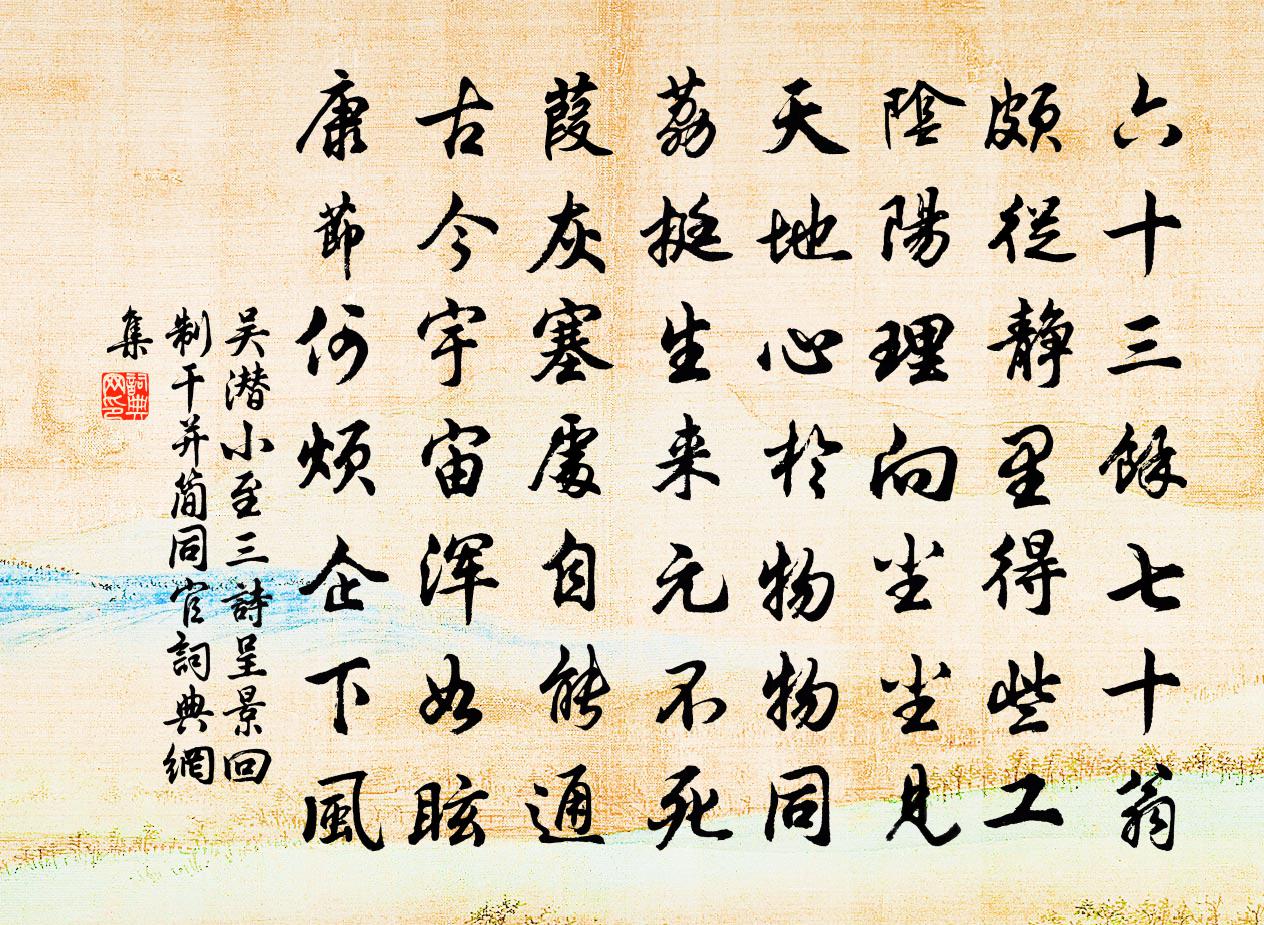 六十三餘七十翁
頗從靜里得些工
陰陽理向尘尘見
天地心於物物同
荔挺生来元不死
葭灰塞處自能通
古今宇宙浑如眩
康節何煩企下風
吴潜小至三詩呈景回
制干并简同官詞典網
集
詞典网印